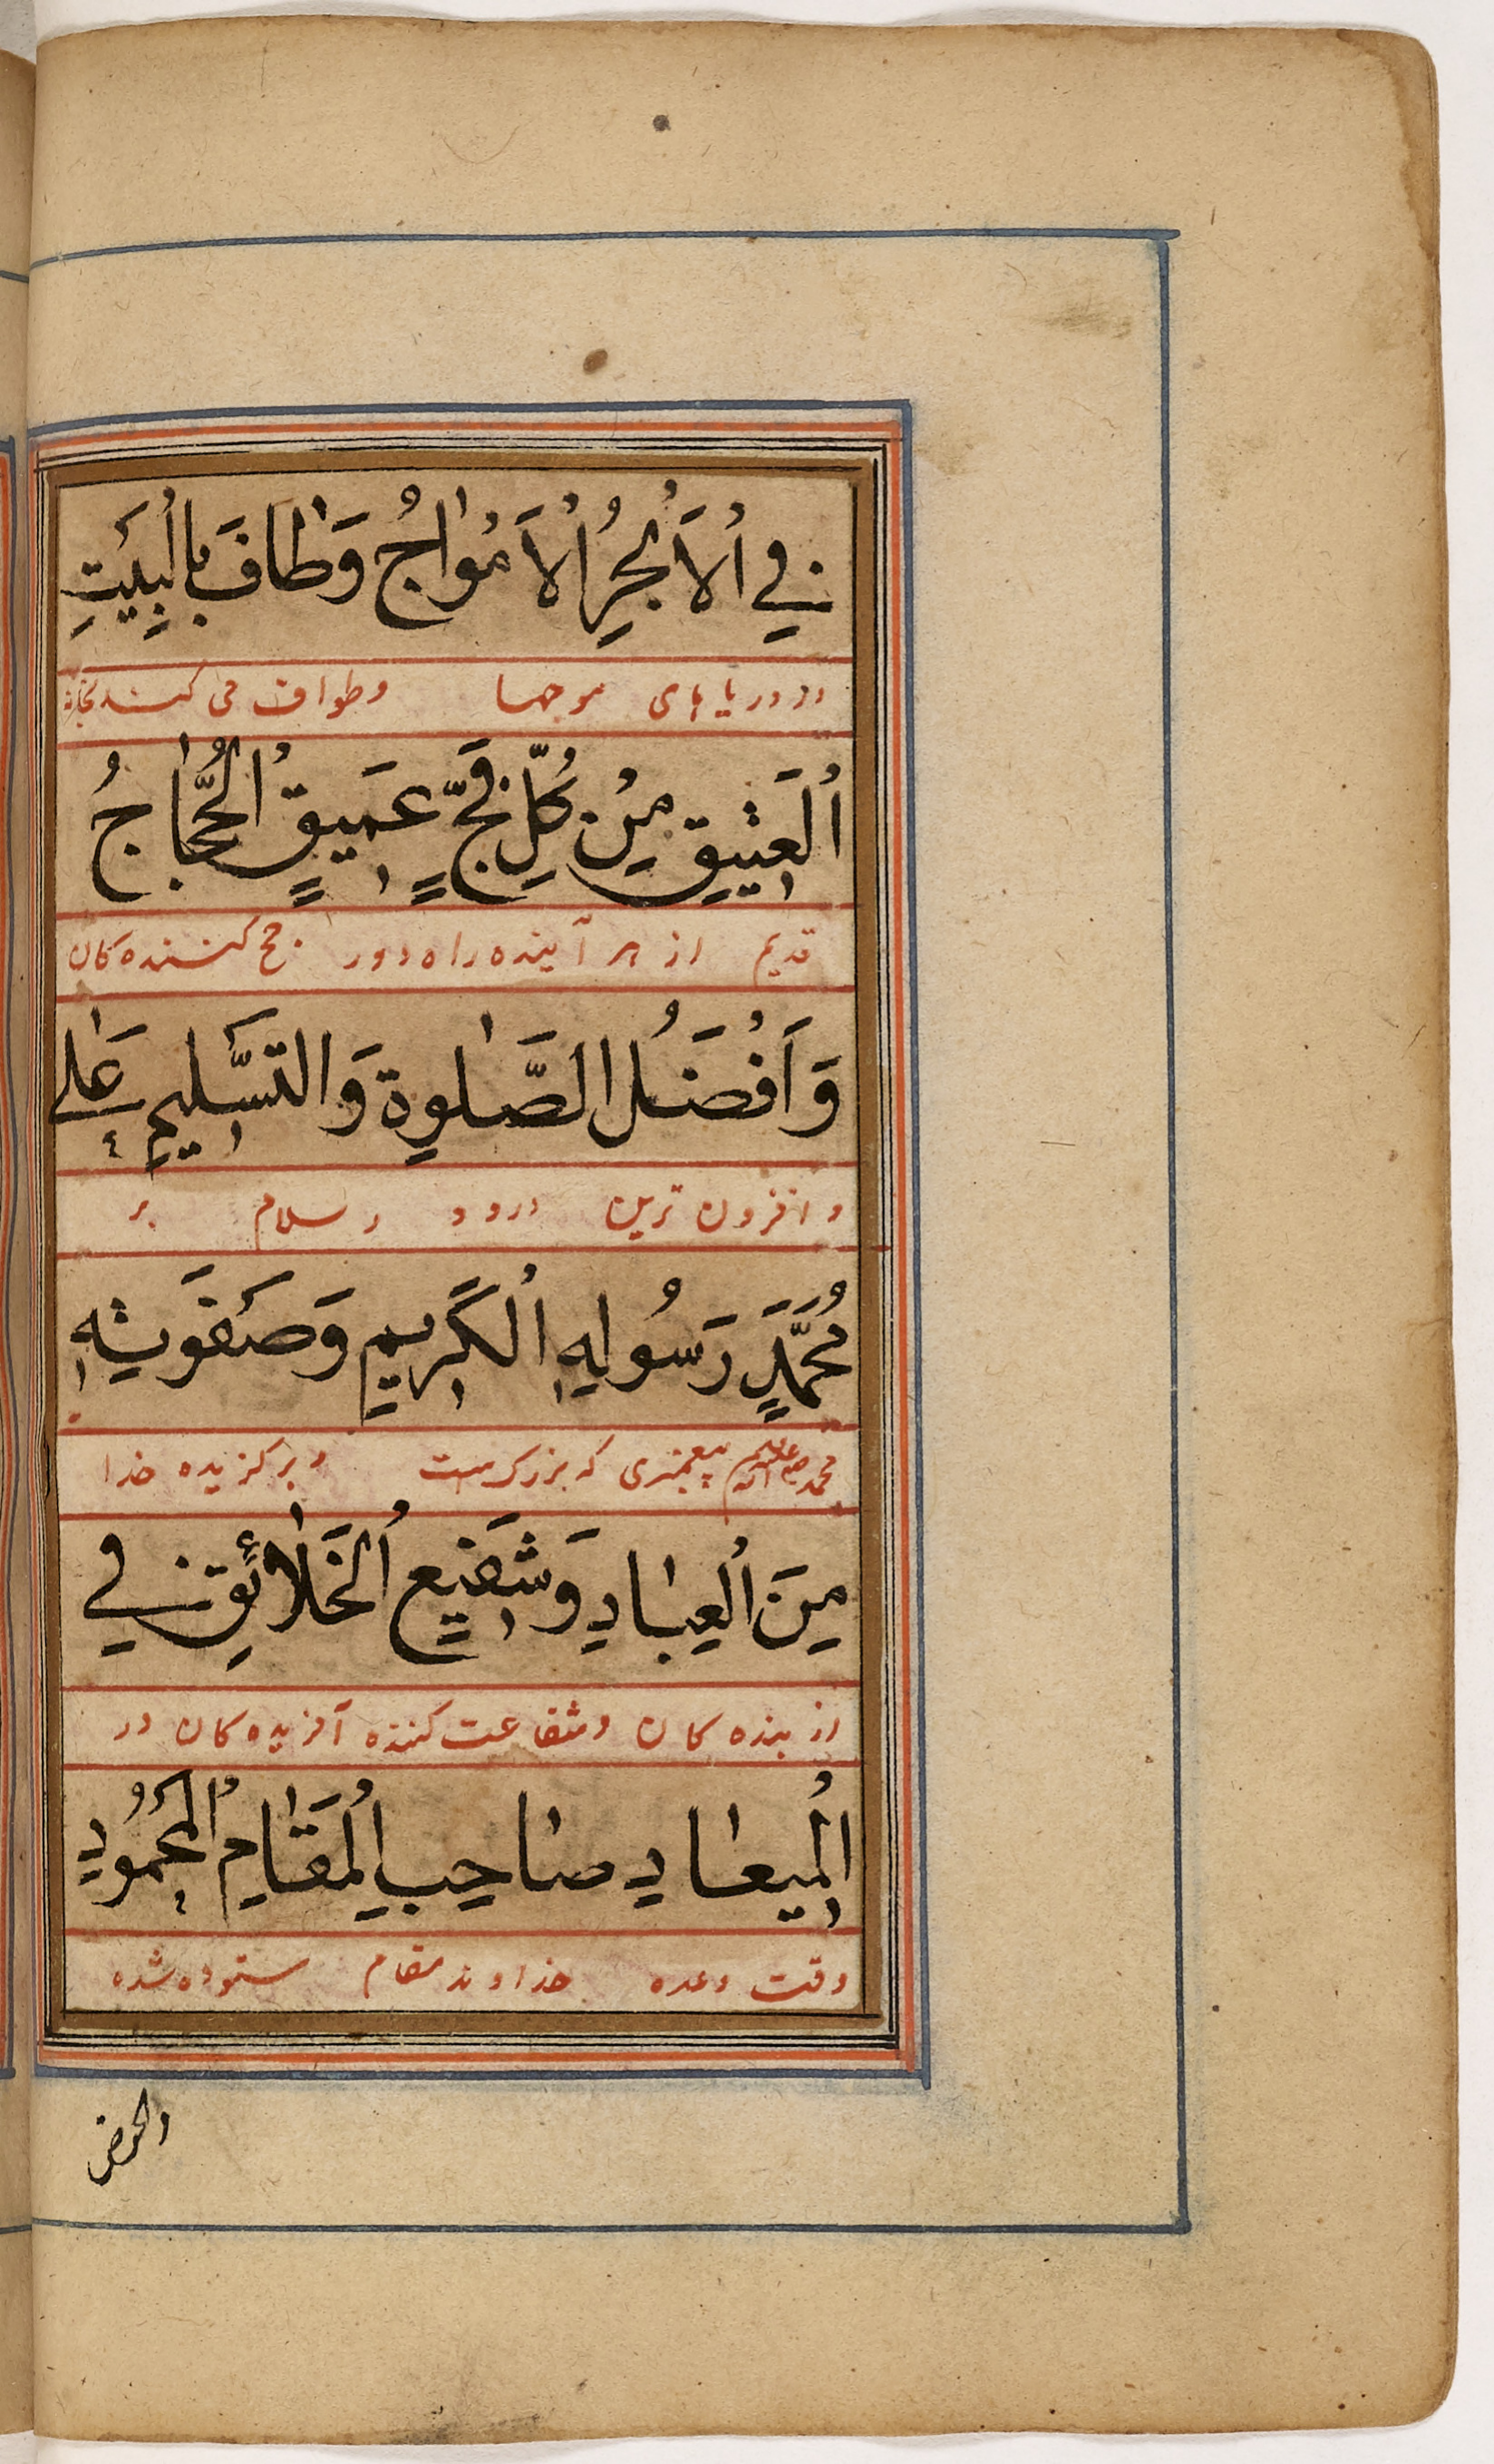 فِي اُلْاَبْحُرُ اُلْاَمْوٰاجُ وَطٰافَ بِالْبَيْتِ
در دریا های موجها وطواف می کنند بخانه
اُلْعَتِيقِ مِنْ كُلِّ فَجٍّ عَمِيقٍ اُلْحُجّٰاجُ
قدیم از هر آینده راه دور حج کننده کان
وَاَفْضَلُ الصَّلٰوةِ وَالتَسَّلِيمِ عَلٰى
و افزون ترین درود و سلام بر
مُحَمَّدٍ رَسُولِهِ اُلْكَرِيمِ وَصَفْوَتِهِ
محمد پیغمبری که بزرگ است و برکزیده خدا
مِنَ اُلْعِبٰادِ وَشَفِيعِ اُلْخَلٰائِقِ فِي
از بنده کان و شفاعت کننده آفریده کان در
اُلْمِيعٰادِ صٰاحِبِ اُلْمَقٰامِ اُلْمَحْمُودِ
وقت وعده خداوند مقام ستوده شده
والحوض